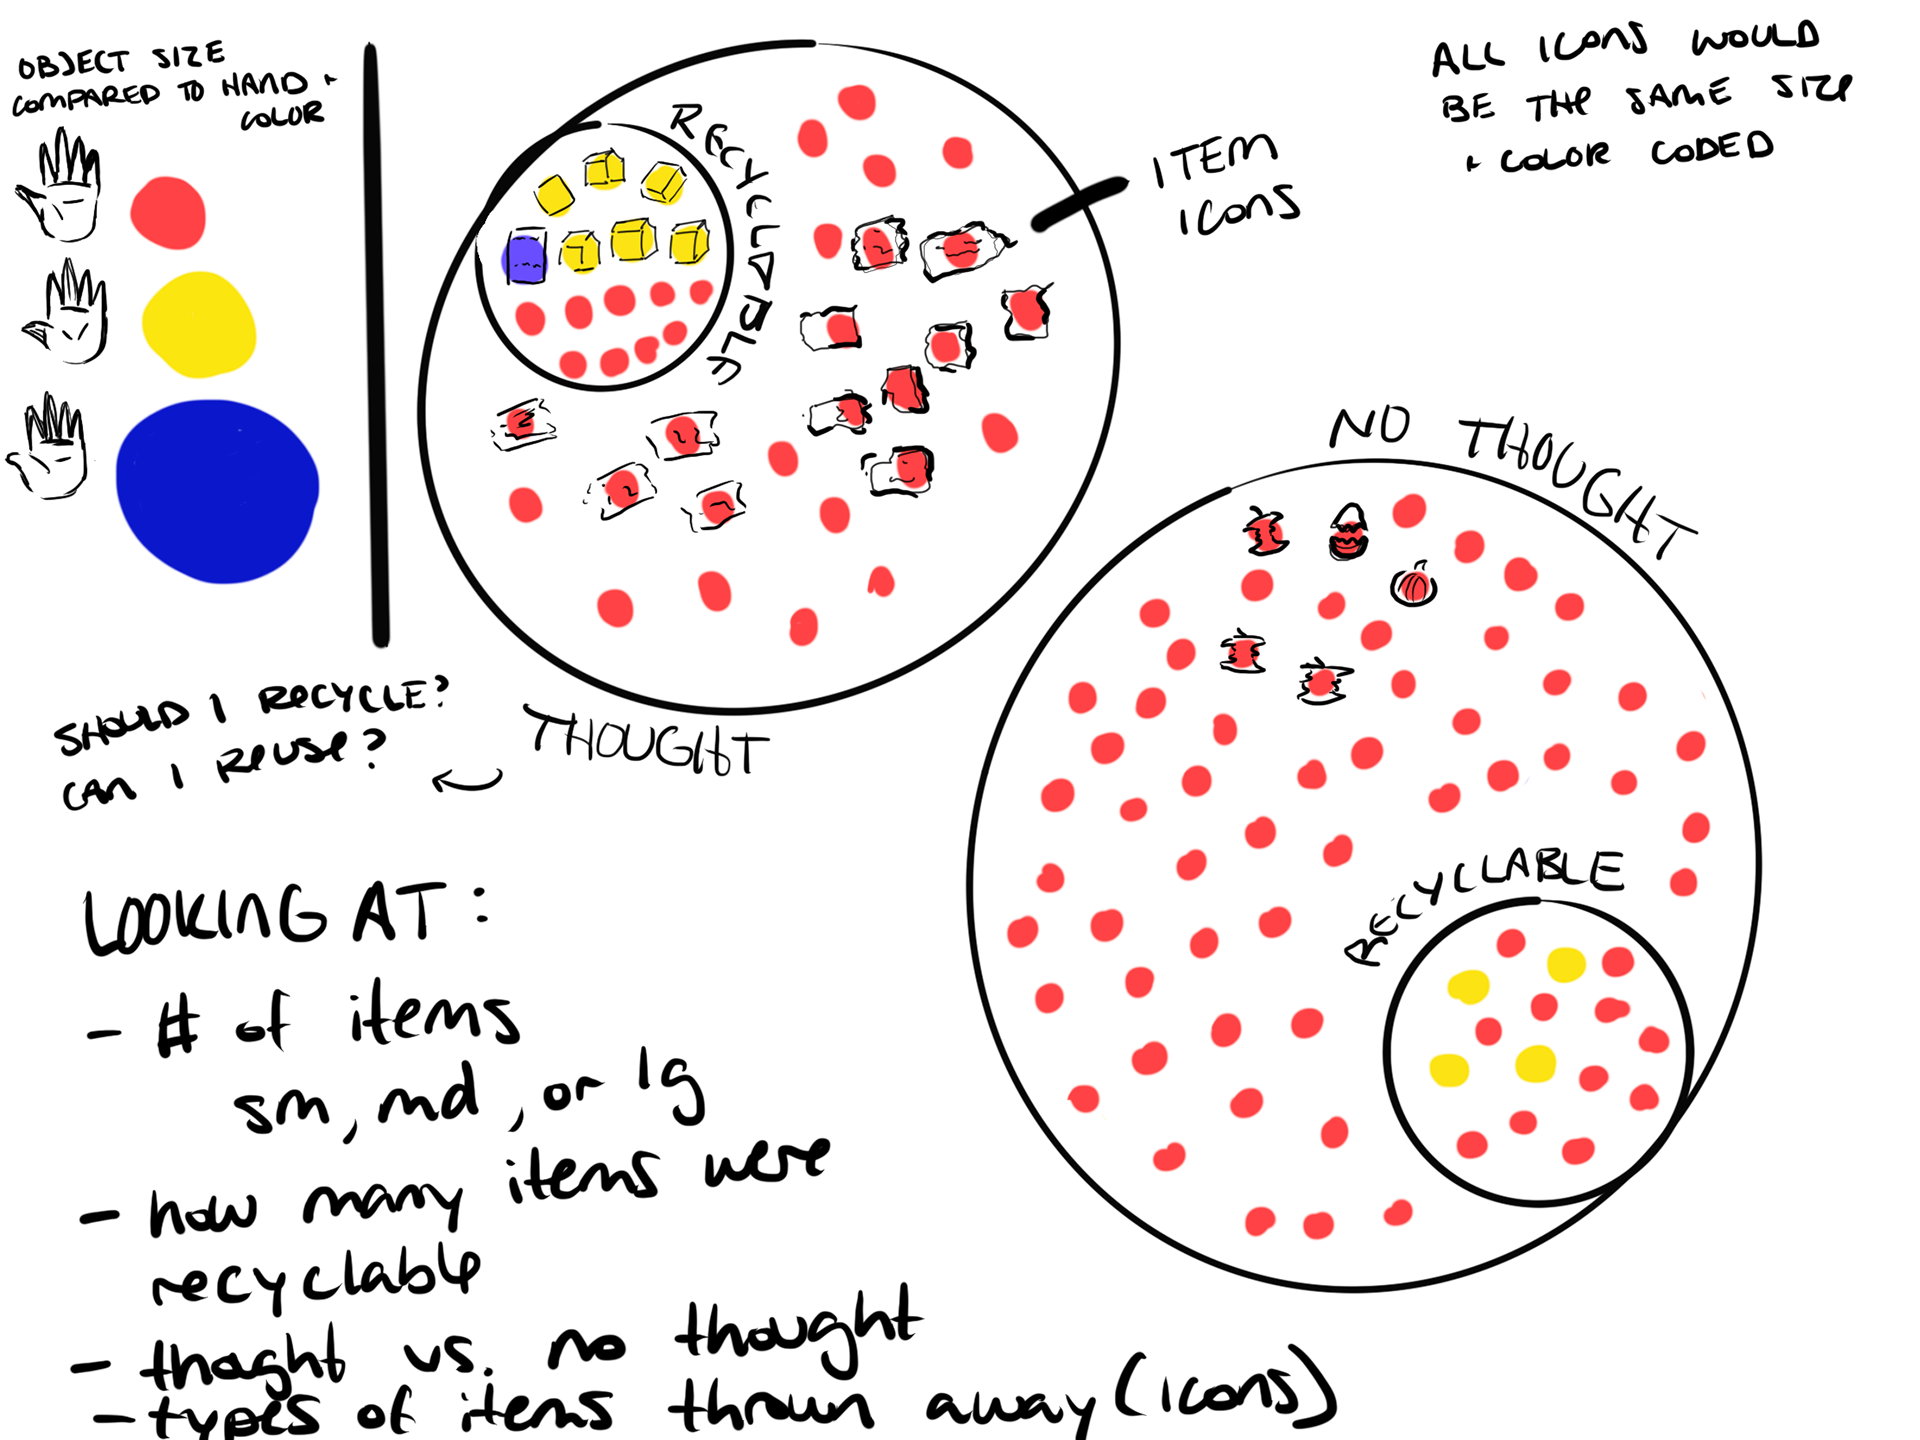 OBJECT SIZE
COMPARED TO HAND +
COLOR
RECYCLABLE
ITEM
ICONS
ALL ICONS WOULD
BE THE SAME SIZE
+ COLOR CODED
NO THOUGHT
THOUGHT
SHOULD I RECYCLE?
CAN I REUSE?
RECYCLABLE
LOOKING AT:
- # of items
sm, md, or lg
- how many items were
recyclable
- thoght vs. no thought
- types of items thrown away (icons)